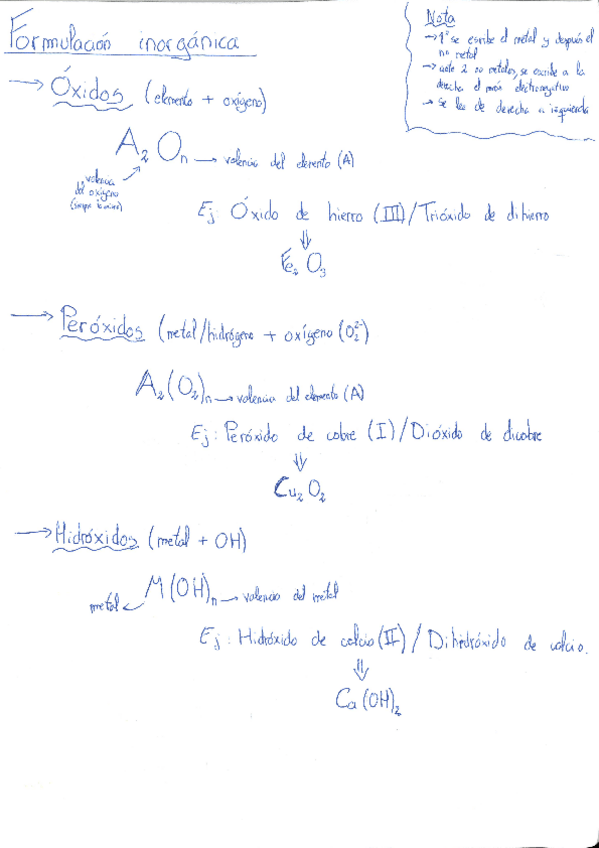 Formulación inorgánica
Nota
→ 1º se escribe el metal y después el
no metal
→ ante 2 no metales, se escribe a la
derecha el más electronegativo
→ Se lee de derecha a izquierda
→ Óxidos (elemento + oxígeno)
A₂Oₙ → valencia del elemento (A)
valencia
del oxígeno
(siempre la misma)
Ej: Óxido de hierro (III)/Trióxido de dihierro
⇓
Fe₂O₃
→ Peróxidos (metal/hidrógeno + oxígeno (O₂²⁻)
A₂(O₂)ₙ → valencia del elemento (A)
Ej: Peróxido de cobre (I)/Dióxido de dicobre
⇓
Cu₂O₂
→ Hidróxidos (metal + OH)
metal ← M(OH)ₙ → valencia del metal
Ej: Hidróxido de calcio (II) / Dihidróxido de calcio.
⇓
Ca(OH)₂